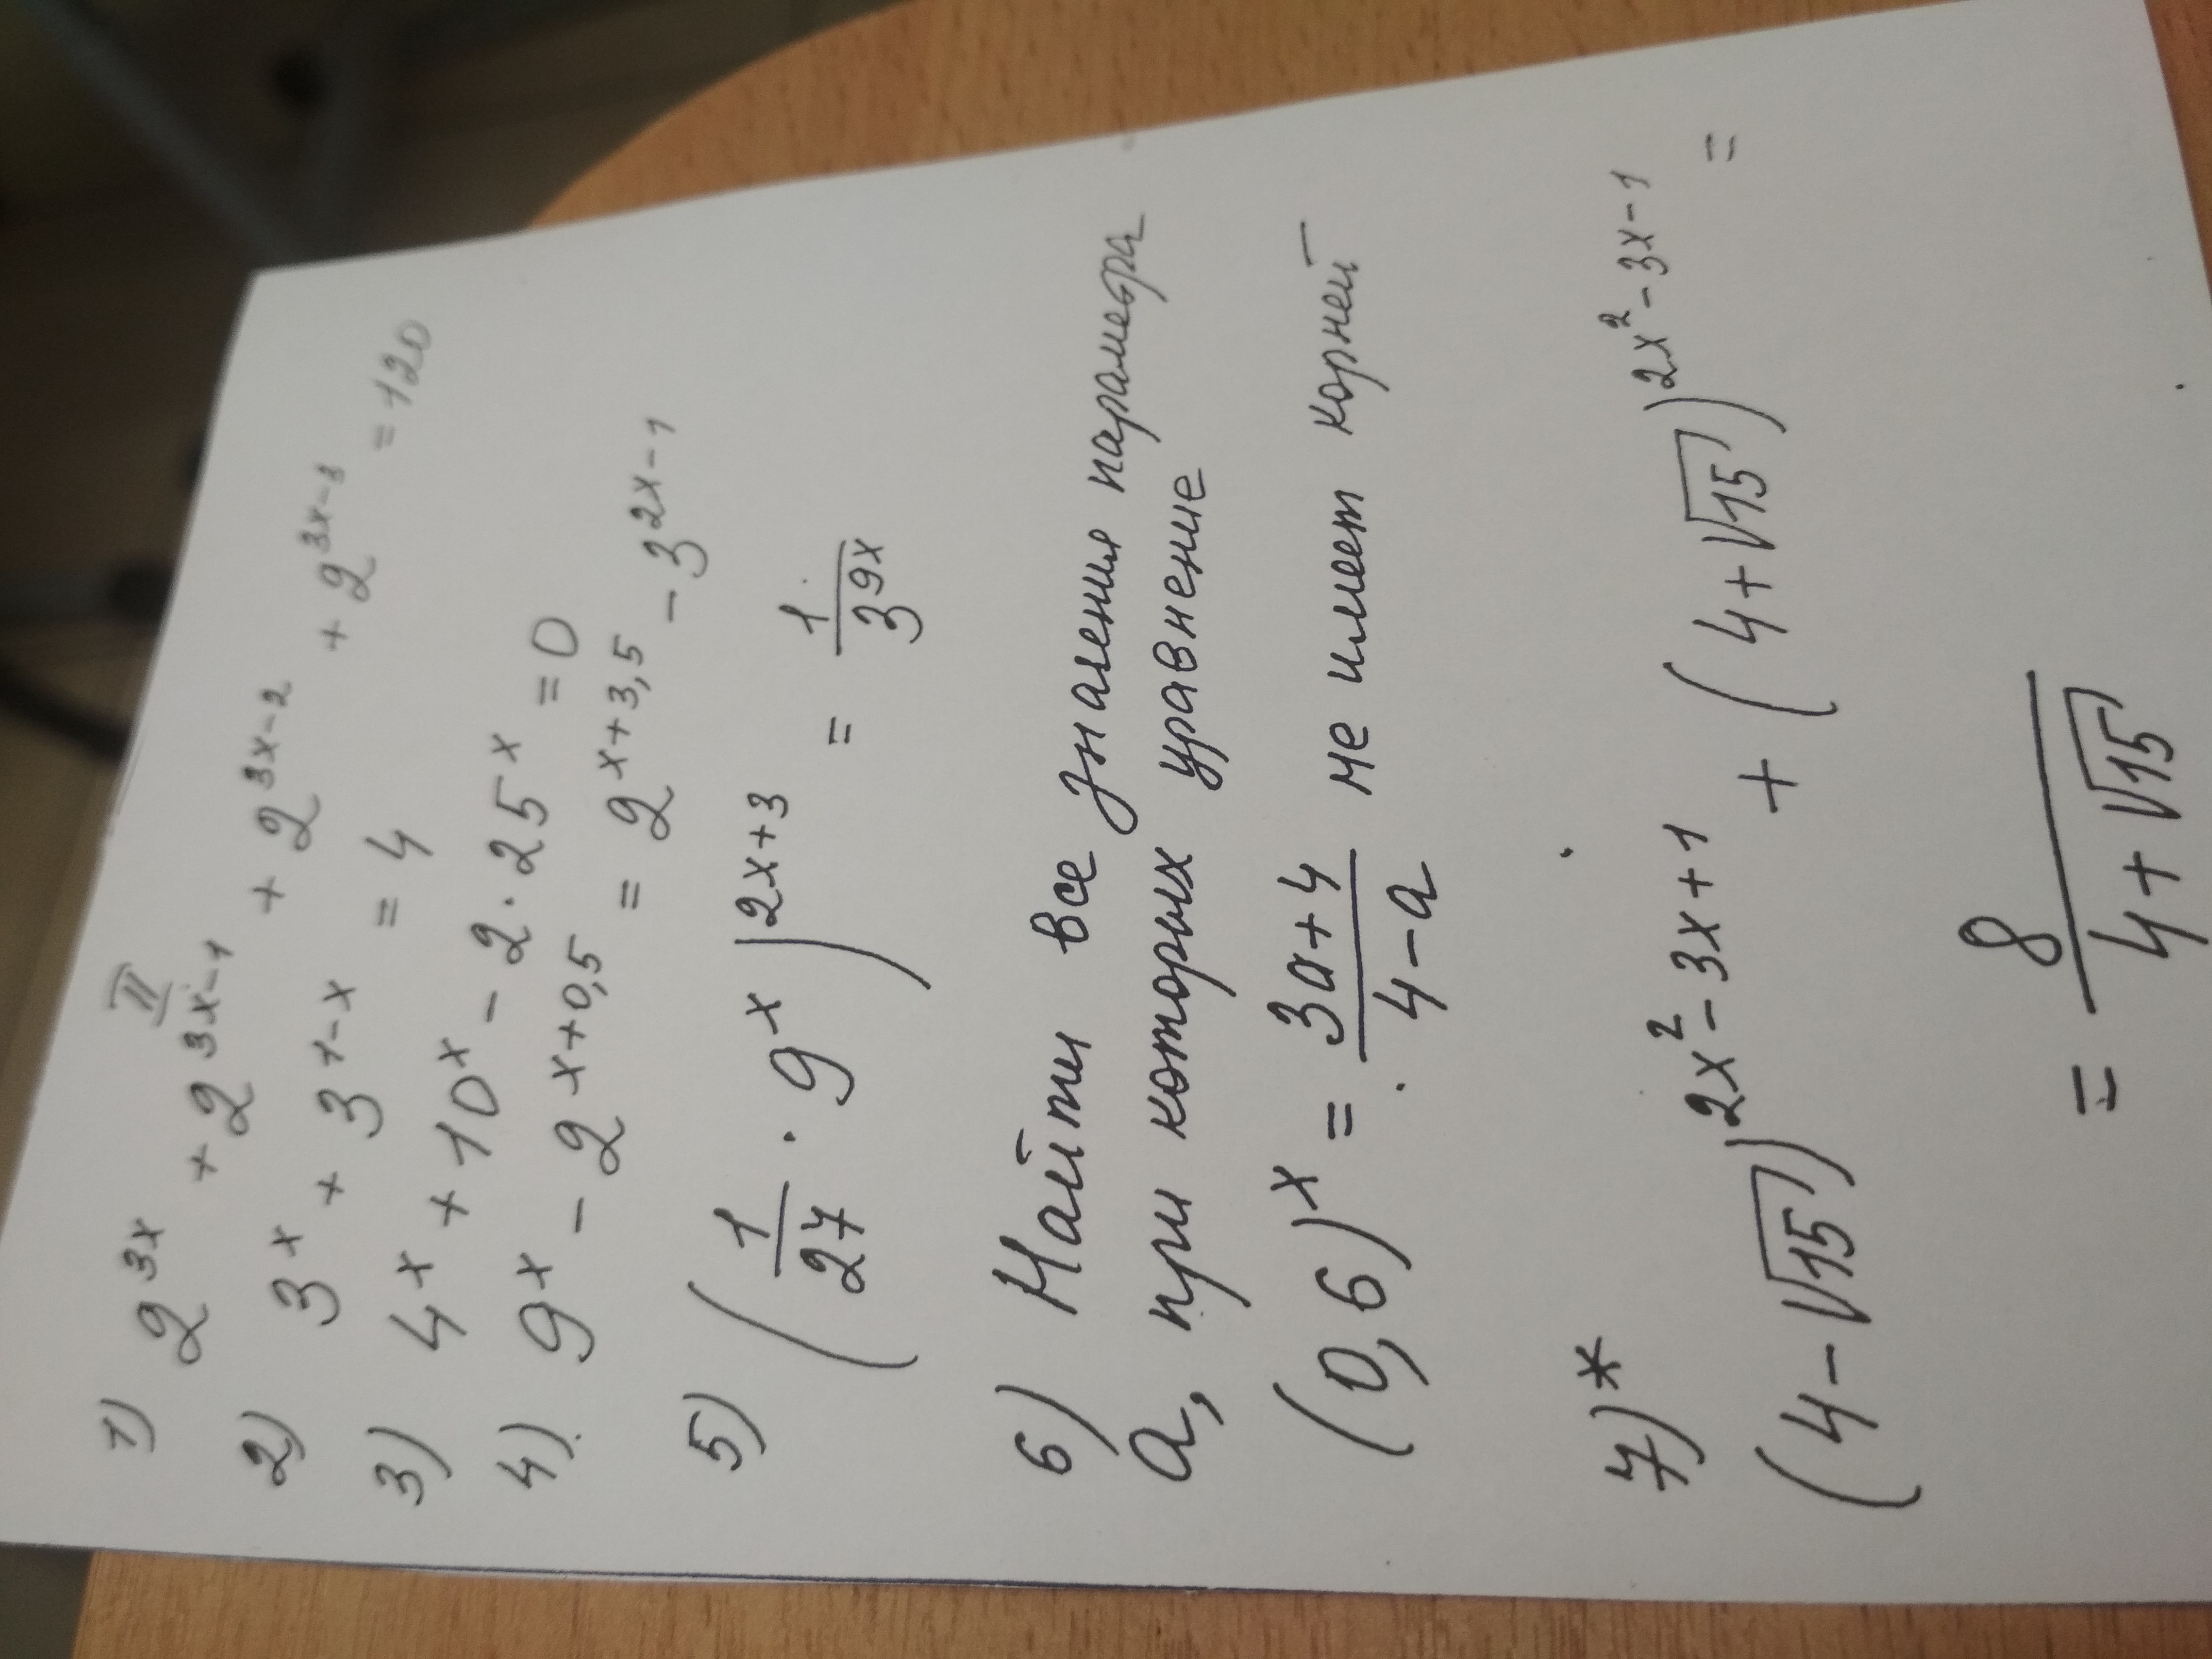 II
1) 2^{3x} + 2^{3x-1} + 2^{3x-2} + 2^{3x-3} = 120
2) 3^x + 3^{1-x} = 4
3) 4^x + 10^x - 2·25^x = 0
4) 9^x - 2^{x+0,5} = 2^{x+3,5} - 3^{2x-1}
5) (1/27 · 9^x)^{2x+3} = 1/3^{9x}
6) Найти все значения параметра
а, при которых уравнение
(0,6)^x = (3a+4)/(4-a) не имеет корней
7)*
(4-√15)^{2x²-3x+1} + (4+√15)^{2x²-3x-1} =
= 8/(4+√15)